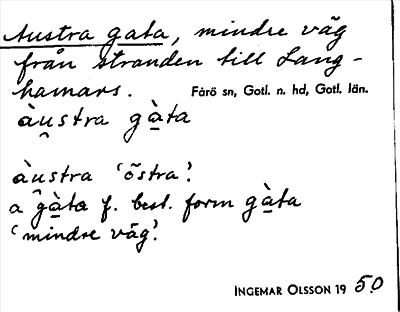 Austra gata, mindre väg
från stranden till Lang-
hamars. Fårö sn, Gotl. n. hd, Gotl. län.
àu̯stra gà̱ta
àu̯stra ‘östra’.
a gà̱ta f. best. form gà̱ta
‘mindre väg’.
INGEMAR OLSSON 19 50